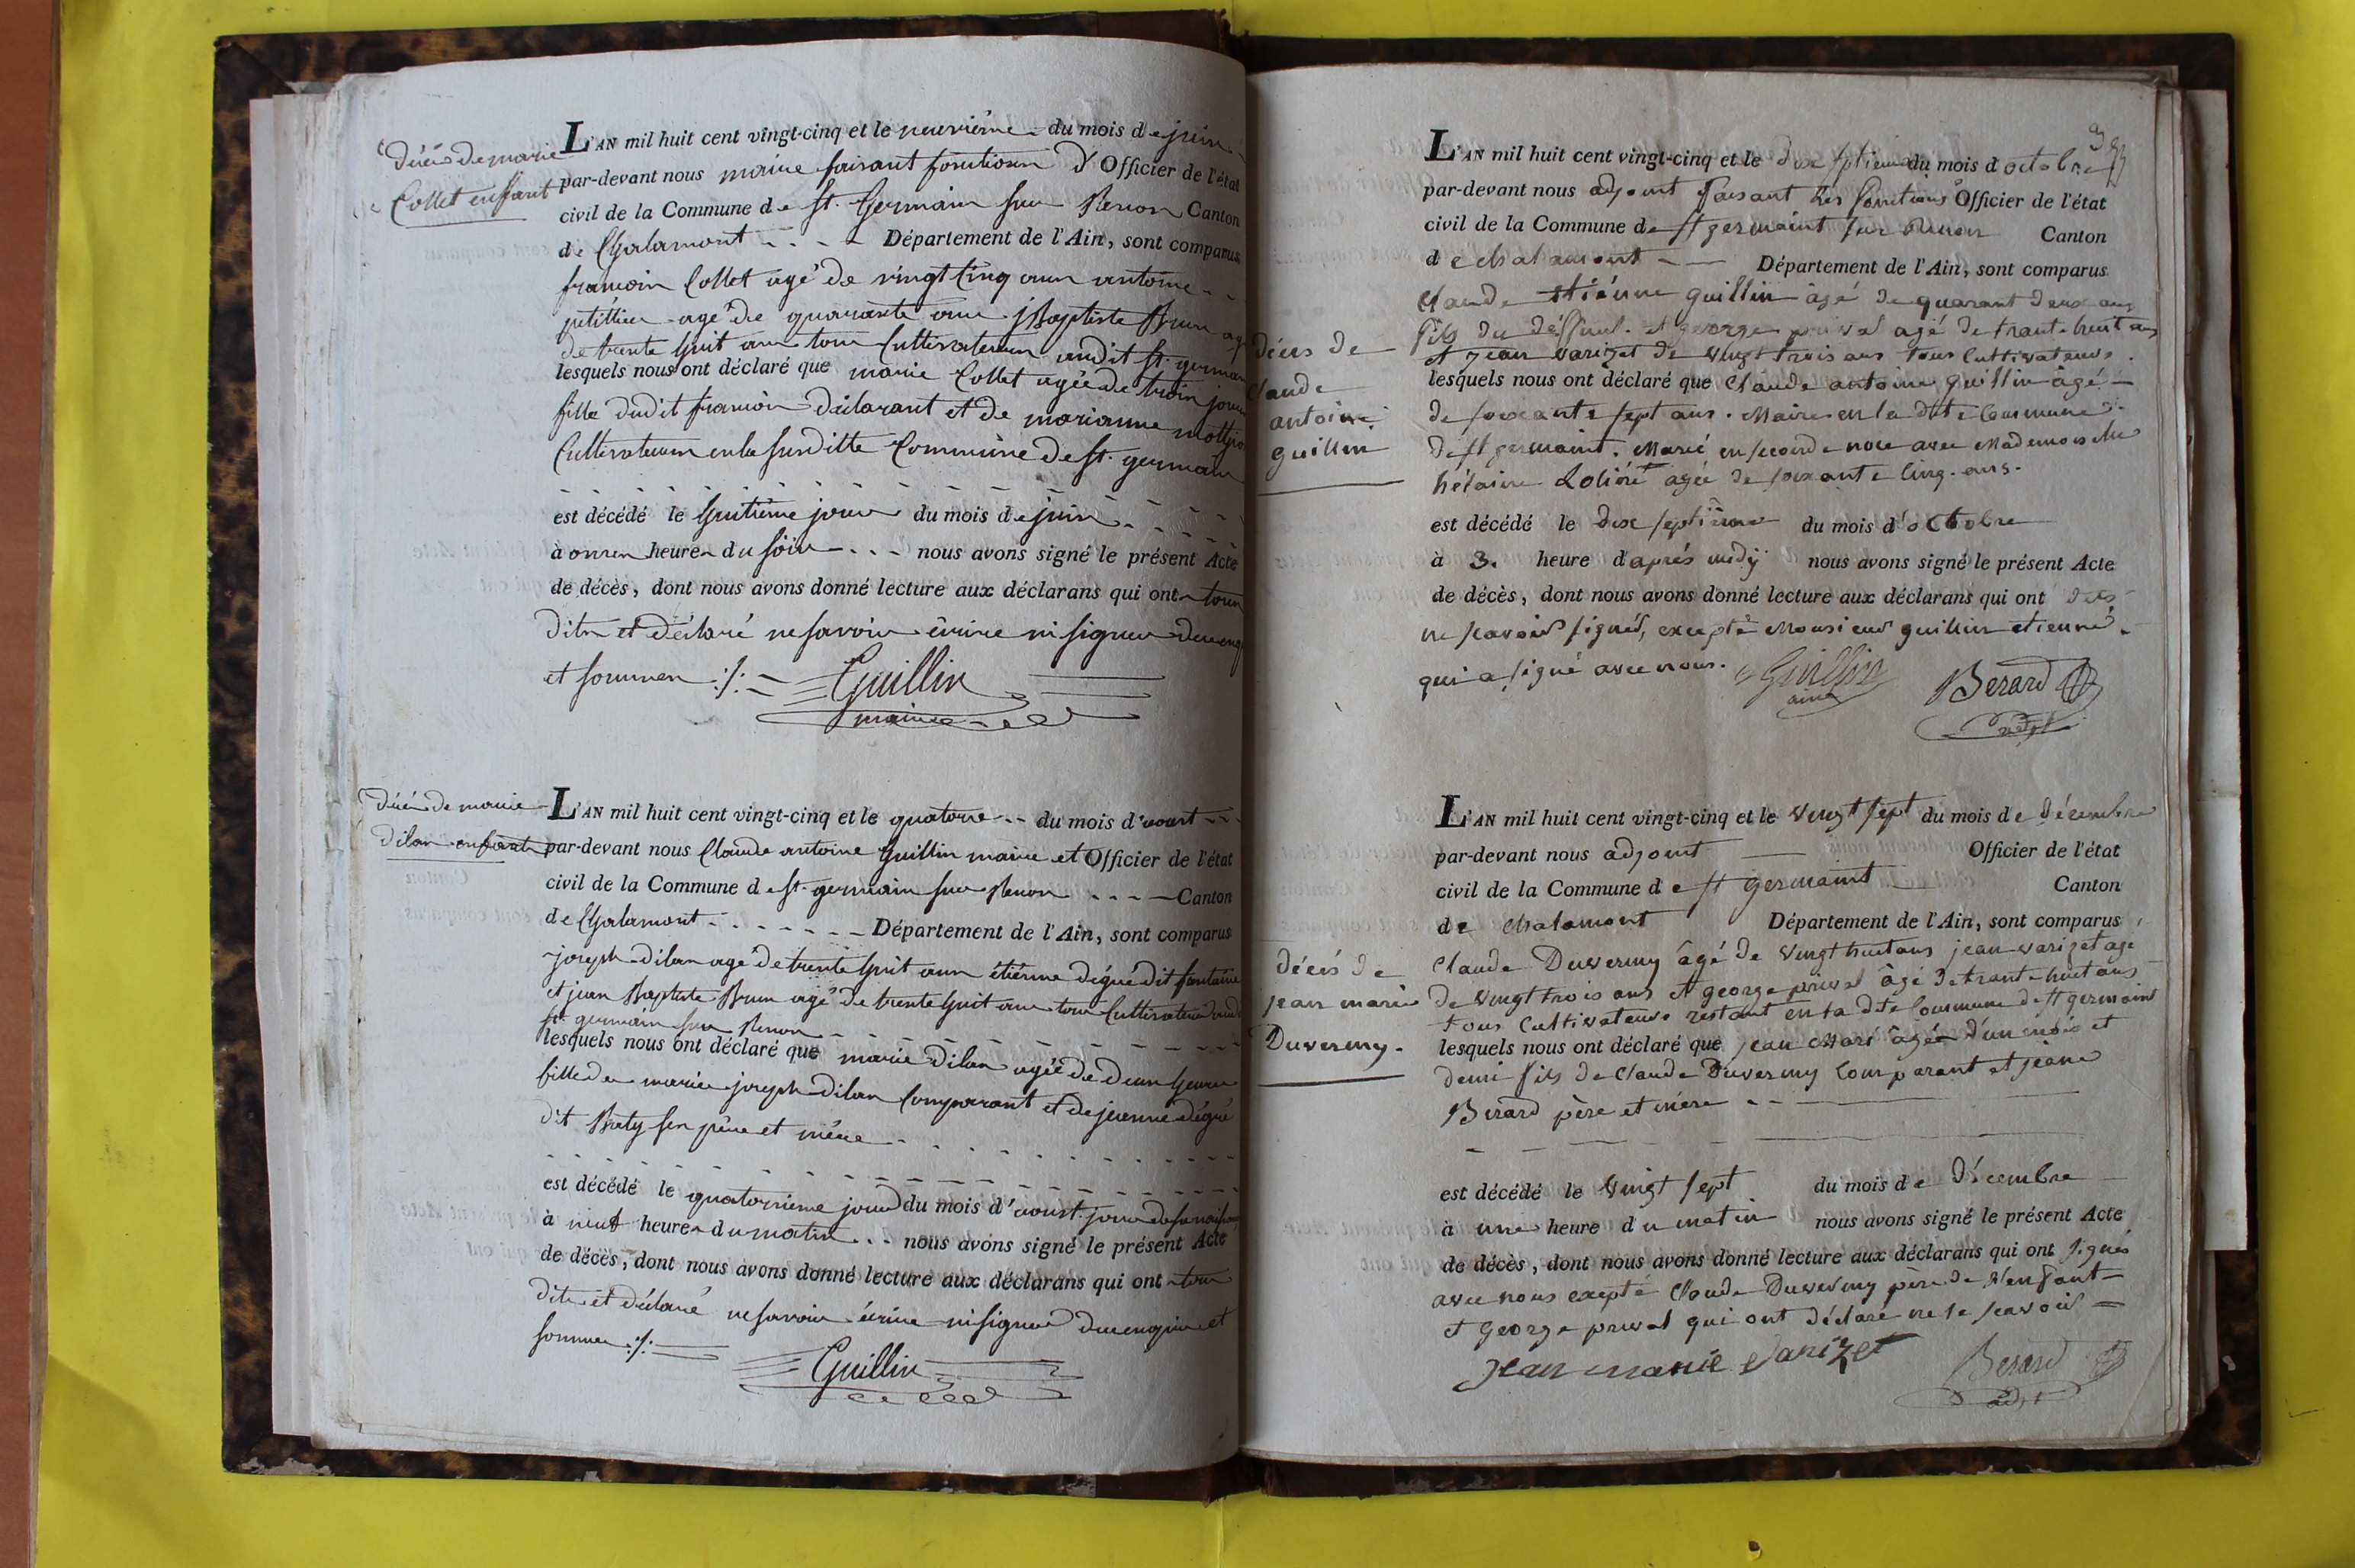 décès de marie
Collet enffant
L'AN mil huit cent vingt-cinq et le neuvième du mois de juin
par-devant nous maire faisant fonctions d'Officier de l'état
civil de la Commune de St. Germain sur Renon Canton
de Chalamont Département de l'Ain, sont comparus
françois Collet agé de vingt cinq ans antoine
agé de quarante ans j Baptiste Brun
de trente huit ans tous Cultivateurs audit St. germain
lesquels nous ont déclaré que marie Collet agée de trois jours
fille dudit françois déclarant et de marianne
Cultivateurs en la susditte Commune de St. germain
est décédé le huitième jour du mois de juin
à onze heures du soir nous avons signé le présent Acte
de décès, dont nous avons donné lecture aux déclarans qui ont tous
dits et déclaré ne savoir écrire ni signer de ce enquis
et sommés :/: Guillin
maire
décès de marie
dilan enfant
L'AN mil huit cent vingt-cinq et le quatorze du mois d'aoust
par-devant nous Claude antoine Guillin maire et Officier de l'état
civil de la Commune de St. germain sur Renon Canton
de Chalamont Département de l'Ain, sont comparus
joseph dilan agé de trente huit ans étienne dégué dit fontaine
et jean Baptiste Brun agé de trente huit ans tous Cultivateurs
St. germain sur Renon
lesquels nous ont déclaré que marie dilan agée de deux heures
fille de joseph dilan Comparant et de jeanne dégué
dit Baty ses père et mère
est décédé le quatorzième jour du mois d'aoust jour de sa naissance
à neuf heures du matin nous avons signé le présent Acte
de décès, dont nous avons donné lecture aux déclarans qui ont tous
dits et déclaré ne savoir écrire ni signer de ce enquis et
sommés :/:
Guillin
L'AN mil huit cent vingt-cinq et le dix septieme du mois d octobre
par-devant nous adjoint faisant les fonctions Officier de l'état
civil de la Commune de St germaint sur Renon Canton
de chalamont Département de l'Ain, sont comparus
Claude étiénne guillin âgé de quarant deux ans
fils du déffunt. et george prival agé de trante huit ans
et jean varizet de vingt trois ans tous Cultivateurs.
décès de
Claude
antoine
guillin
lesquels nous ont déclaré que Claude antoine guillin âgé
de soixante sept ans. Maire en la dite Commune
de St germaint. Marié en seconde noce avec Mademoiselle
agée de soixante cinq ans.
est décédé le dix septième du mois d'octobre
à 3. heure d'après midÿ nous avons signé le présent Acte
de décès, dont nous avons donné lecture aux déclarans qui ont dits
ne scavoir signés, excepté Monsieur guillin étienne
qui a signé avec nous. Guillin Berard
ainé adjt
L'AN mil huit cent vingt-cinq et le vingt sept du mois de décembre
par-devant nous adjoint Officier de l'état
civil de la Commune de St germaint Canton
de chalamont Département de l'Ain, sont comparus
décés de
jean marie
Duvermy.
Claude Duvermy âgé de vingt huit ans jean varizet agé
de vingt trois ans et george prival âgé de trante huit ans
tous Cultivateurs restant en la dite Commune de St germaint
lesquels nous ont déclaré que jean Mari âgé d'un mois et
demi fils de Claude Duvermy Comparant et jeane
Berard père et mère
est décédé le vingt sept du mois de décembre
à une heure du matin nous avons signé le présent Acte
de décès, dont nous avons donné lecture aux déclarans qui ont signés
avec nous exepté Claude Duvermy père de l'enfant
et George prival qui ont déclaré ne le scavoir
jean marie varizet Berard
adjt